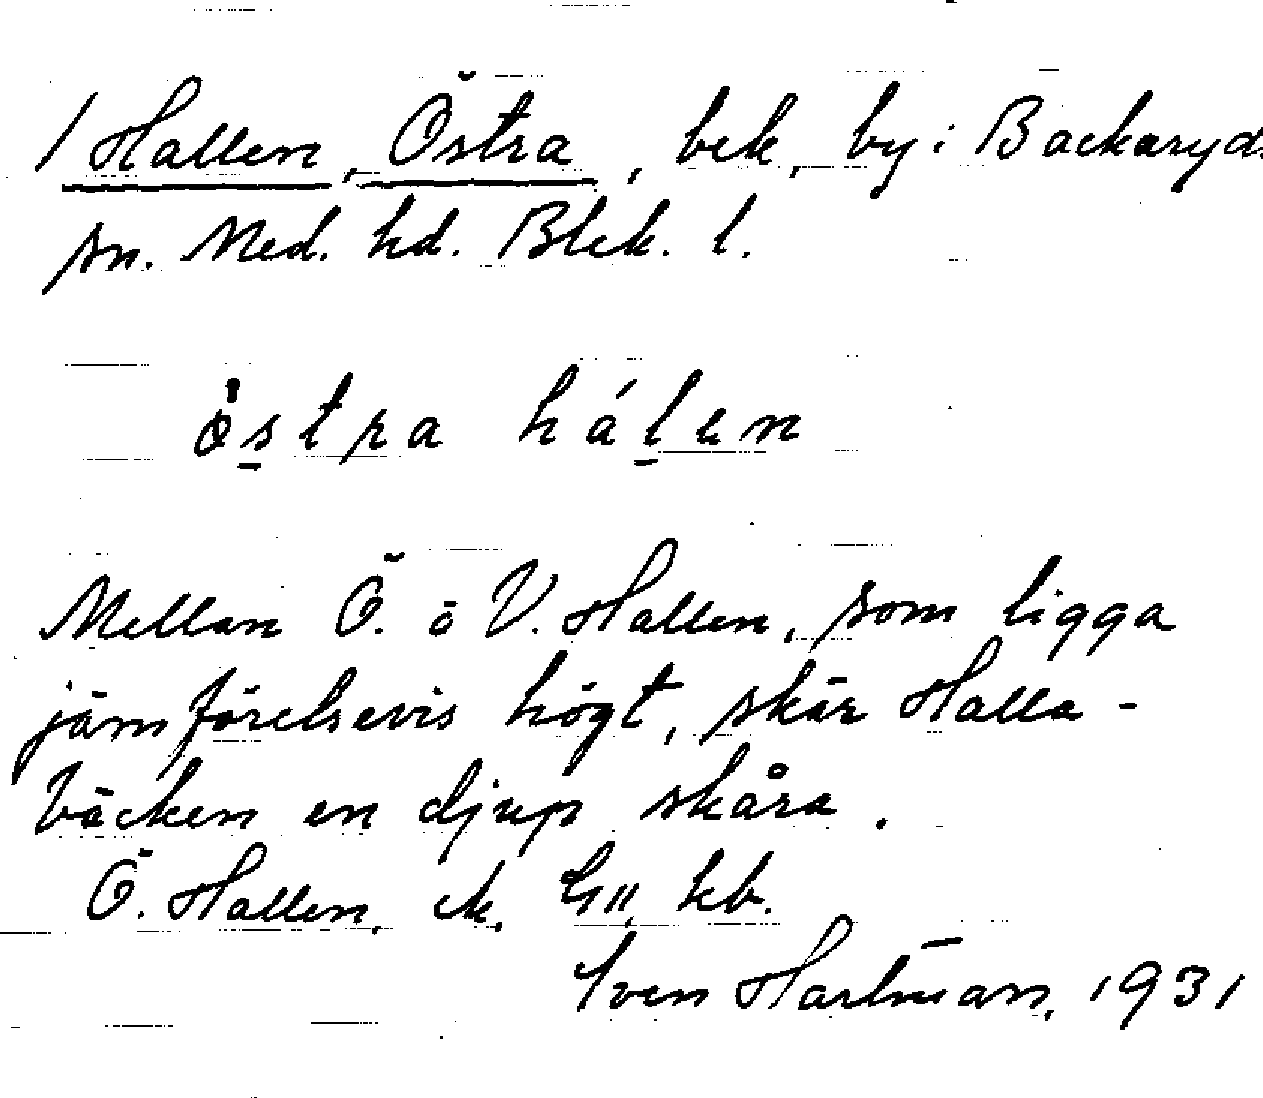 / Hallen, Östra, bek, by i Backaryds
sn. Med. hd. Blek. l.
östra hálen
Mellan Ö. o V. Hallen, som ligga
jämförelsevis högt, skär Halla-
bäcken en djup skåra.
Ö. Hallen, ek, G11, kb.
Sven Hartman, 1931